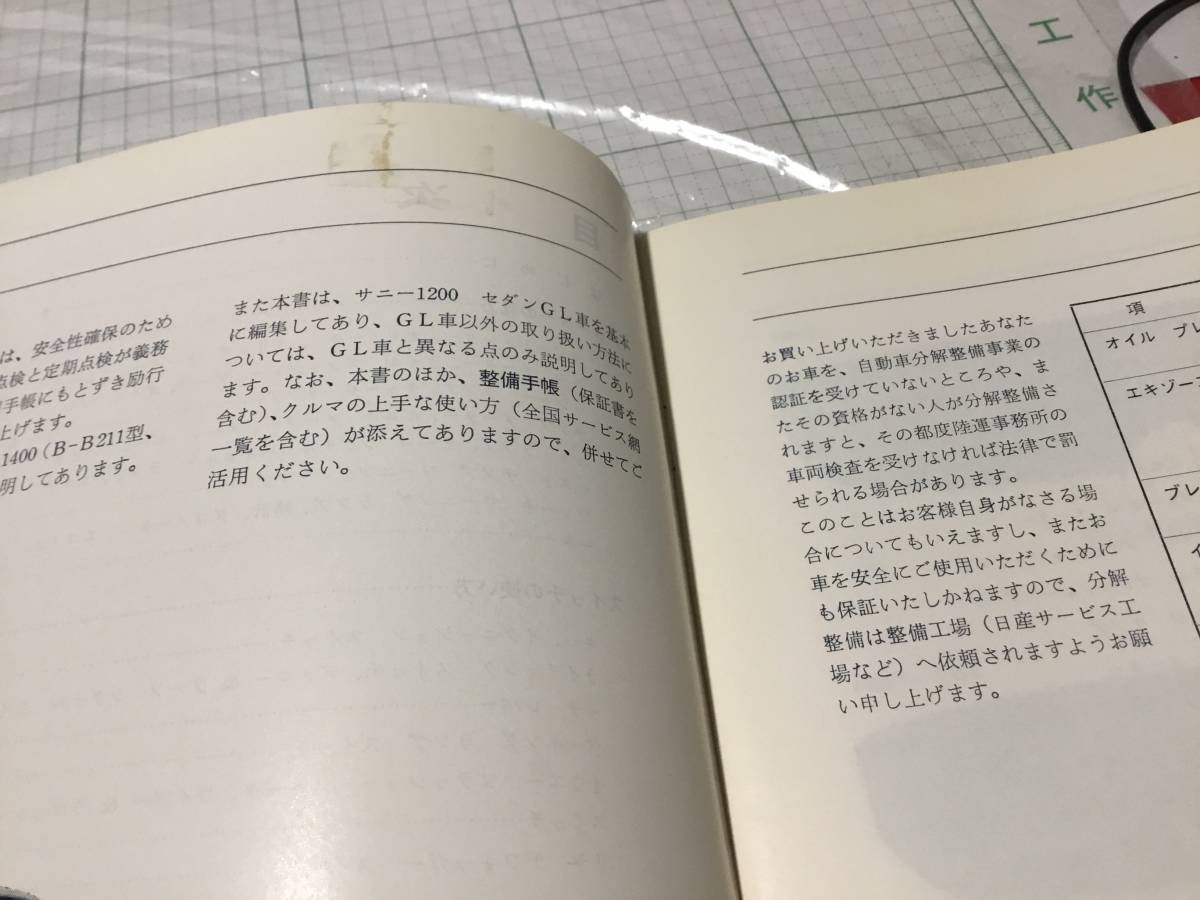 工
作
は、安全性確保のため
点検と定期点検が義務
手帳にもとずき励行
上げます。
1400（B－B211型、
明してあります。
また本書は、サニー1200　セダンＧＬ車を基本
に編集してあり、ＧＬ車以外の取り扱い方法に
ついては、ＧＬ車と異なる点のみ説明してあり
ます。なお、本書のほか、整備手帳（保証書を
含む）、クルマの上手な使い方（全国サービス網
一覧を含む）が添えてありますので、併せてご
活用ください。
お買い上げいただきましたあなた
のお車を、自動車分解整備事業の
認証を受けていないところや、ま
たその資格がない人が分解整備さ
れますと、その都度陸運事務所の
車両検査を受けなければ法律で罰
せられる場合があります。
このことはお客様自身がなさる場
合についてもいえますし、またお
車を安全にご使用いただくために
も保証いたしかねますので、分解
整備は整備工場（日産サービス工
場など）へ依頼されますようお願
い申し上げます。
項
オイル　ブレ
エキゾー
ブレ